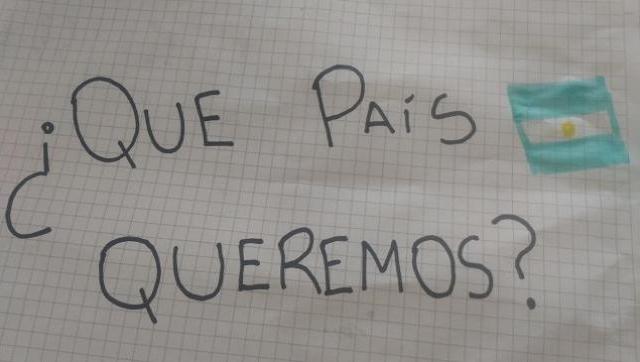 ¿QUE PAíS
QUEREMOS?